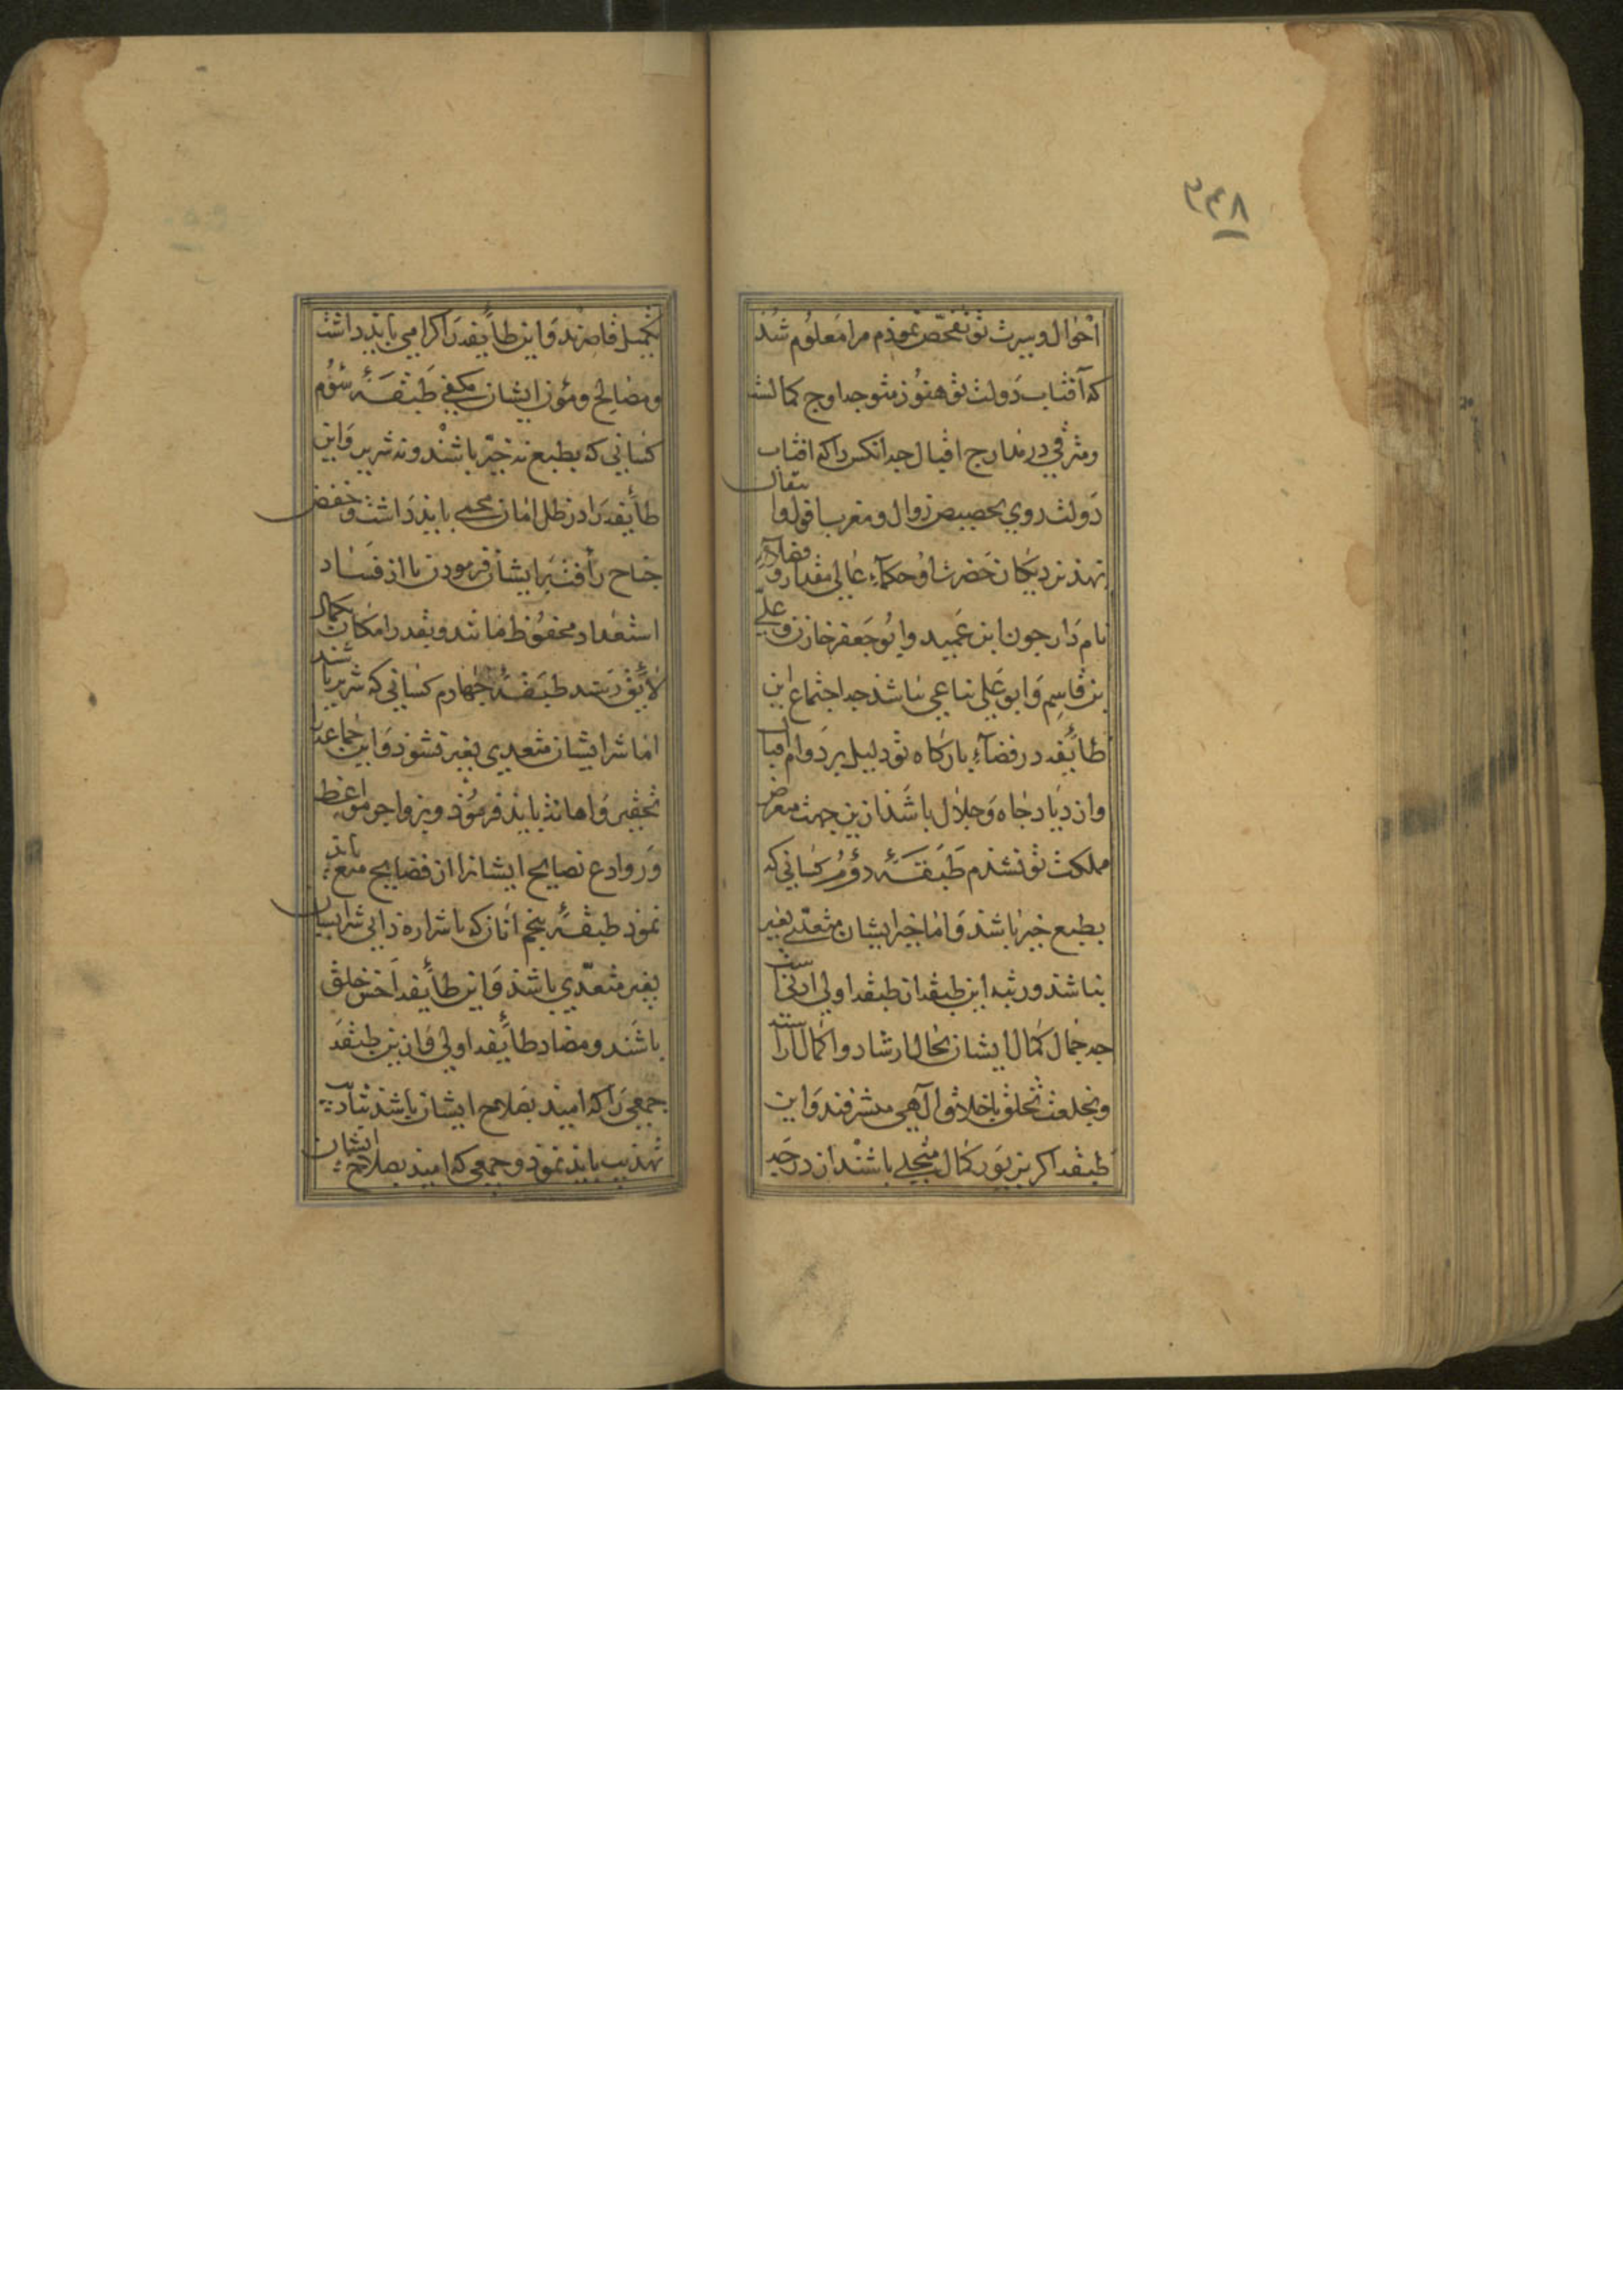 ۲۴۸
احوال و سیرت تو تفحّص نموذم مرا معلوم شذ
که آفتاب دولت تو هنوز متوجه اوج کمالست
و مترقی در مدارج اقبال جه انکس را که افتاب
دولت روی بحضیض زوال و مغرب انتقال
نهذ نزدیکان حضرت او حکماء عالی مقدار و فضلاء
نام دار جون ابن عمید و ابو جعفر خازن و علی
بن قاسم و ابو علی بیاعی نباشذ جه اجتماع این
طائفه در فضاء بارکاه تو دلیل بر دوام اقبال
و ازدیاد جاه و جلال باشذ ازین جهت متعرض
مملکت تو نشذم طبقۀ دوّم کسانی که
بطبع خیر باشند و اما خیر ایشان متعدّی بغیر
نباشد و رتبه این طبقه از طبقه اولی ادنی است
جه جمال کمال ایشان بحال ارشاد و اکمال اراسته
و بخلعت تخلق باخلاق الهی مشرفند و این
طبقه اکر بزیور کمال متحلی باشند از درجه
تکمیل قاصرند و این طائفه را کرامی باید داشت
و مصالح و مؤن ایشان مکفی طبقۀ سوّم
کسانی که بطبع نه خیّر باشند و نه شریر و این
طائفه را در ظل امان محمی بایذ داشت و خفض
جناح رأفت بر ایشان فرمودن تا از فساد
استعداد محفوظ مانند و بقدر امکان بکمال
لایق رسند طبقۀ جهارم کسانی که شریر باشند
اما شر ایشان متعدی بغیر نشوذ و این جماعت را
تحقیر و اهانت بایذ فرموذ و بزواجر مواعظ
و روادع نصایح ایشانرا از فضایح منع بایذ
نموذ طبقۀ بنجم آنان که با شرارة ذاتی شر ایشان
بغیر متعدّی باشذ و این طائفه اخس خلق
باشند و مضاد طائفه اولی و ازین طبقه
جمعی را که امیذ بصلاح ایشان باشذ بتادیب
تهذیب بایذ نموذ و جمعی که امیذ بصلاح ایشان